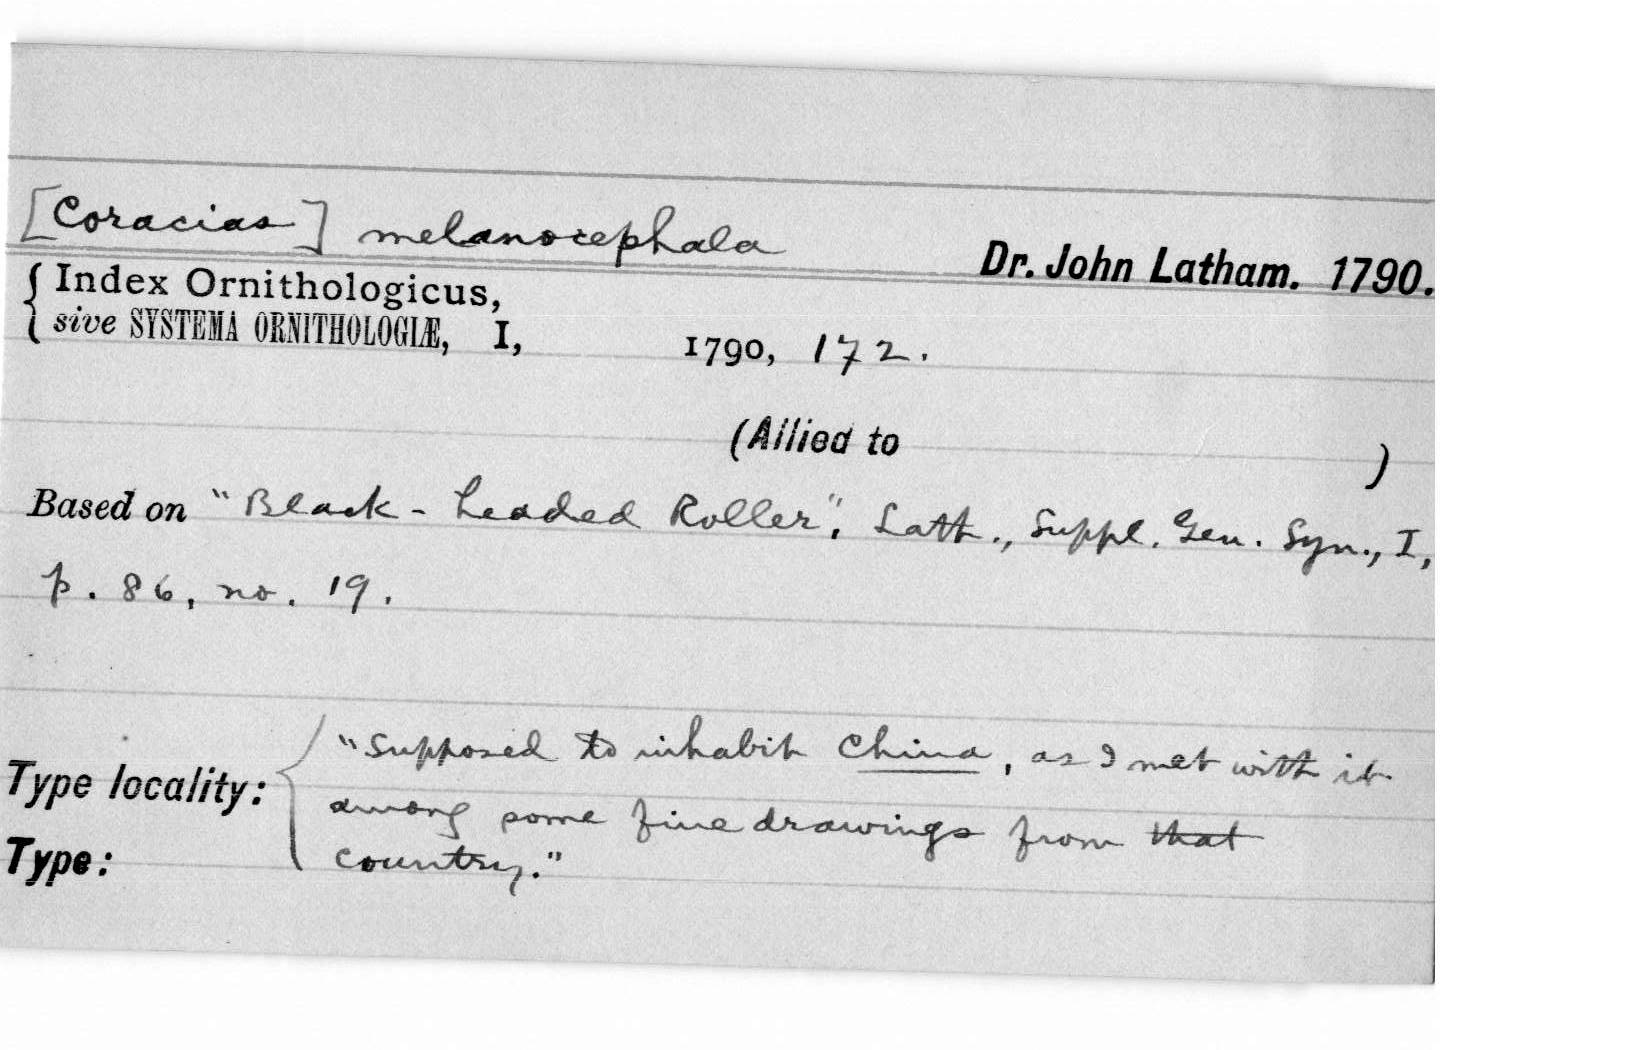 [Coracias] melanocephala
Dr. John Latham. 1790.
{ Index Ornithologicus,
sive SYSTEMA ORNITHOLOGIÆ, I, 1790, 172.
(Allied to )
Based on "Black-headed Roller", Lath., Suppl. Gen. Syn., I,
p. 86, no. 19.
"Supposed to inhabit China, as I met with it
Type locality: among some fine drawings from that
Type: country."